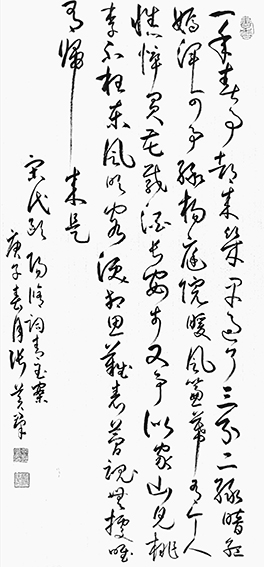 一年春事都来几早过了三分二绿暗红
嫣浑可事绿杨庭院暖风帘幕有个人
憔悴买花载酒长安市又争似家山见桃
李不枉东风吹客泪相思难表梦魂无据唯
有归来是
宋代欧阳修词青玉案
庚子春月张